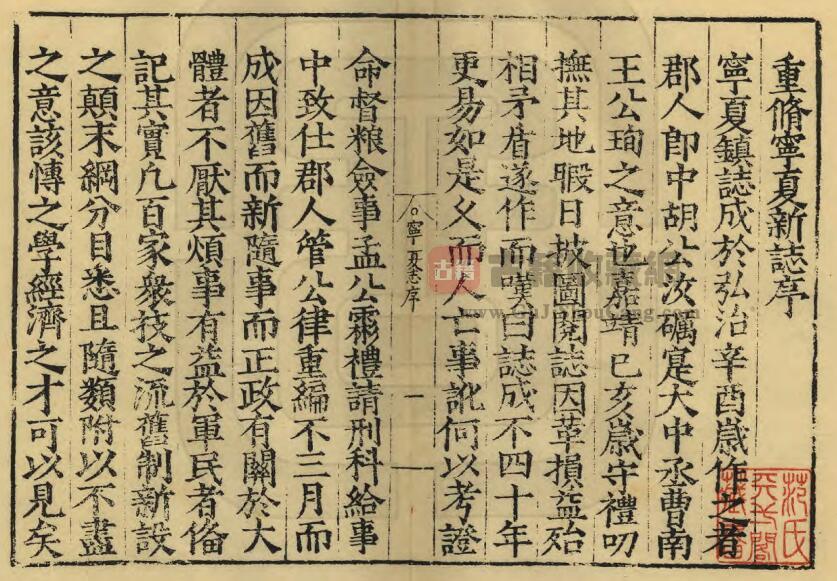 重脩寧夏新誌序
寧夏鎮誌成於弘治辛酉歲作之者
郡人郎中胡公汝礪寔大中丞曹南
王公珣之意也嘉靖己亥歲守禮叨
撫其地暇日披圖閱誌因革損益殆
相矛盾遂作而嘆曰誌成不四十年
更易如是父而人亡事訛何以考證
寧夏志序
一
命督粮僉事孟公霦禮請刑科給事
中致仕郡人管公律重編不三月而
成因舊而新隨事而正政有關於大
體者不厭其煩事有益於軍民者俻
記其實凢百家衆技之流舊制新設
之顛末綱分目悉且隨類附以不盡
之意該慱之學經濟之才可以見矣
范氏
天一閣
古籍